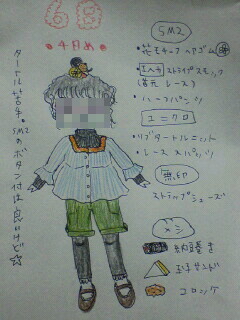 6日
●4月め●
SM2
・花モチーフヘアゴム
・ストライプスモック
(首元レース)
・ハーフパンツ
ユニクロ
・リブタートルニット
・レーススパッツ
無印
ストラップシューズ
メシ
納豆巻き
玉子サンド
コロッケ
タートル苦手。SM2のボタン付は良いけど☆